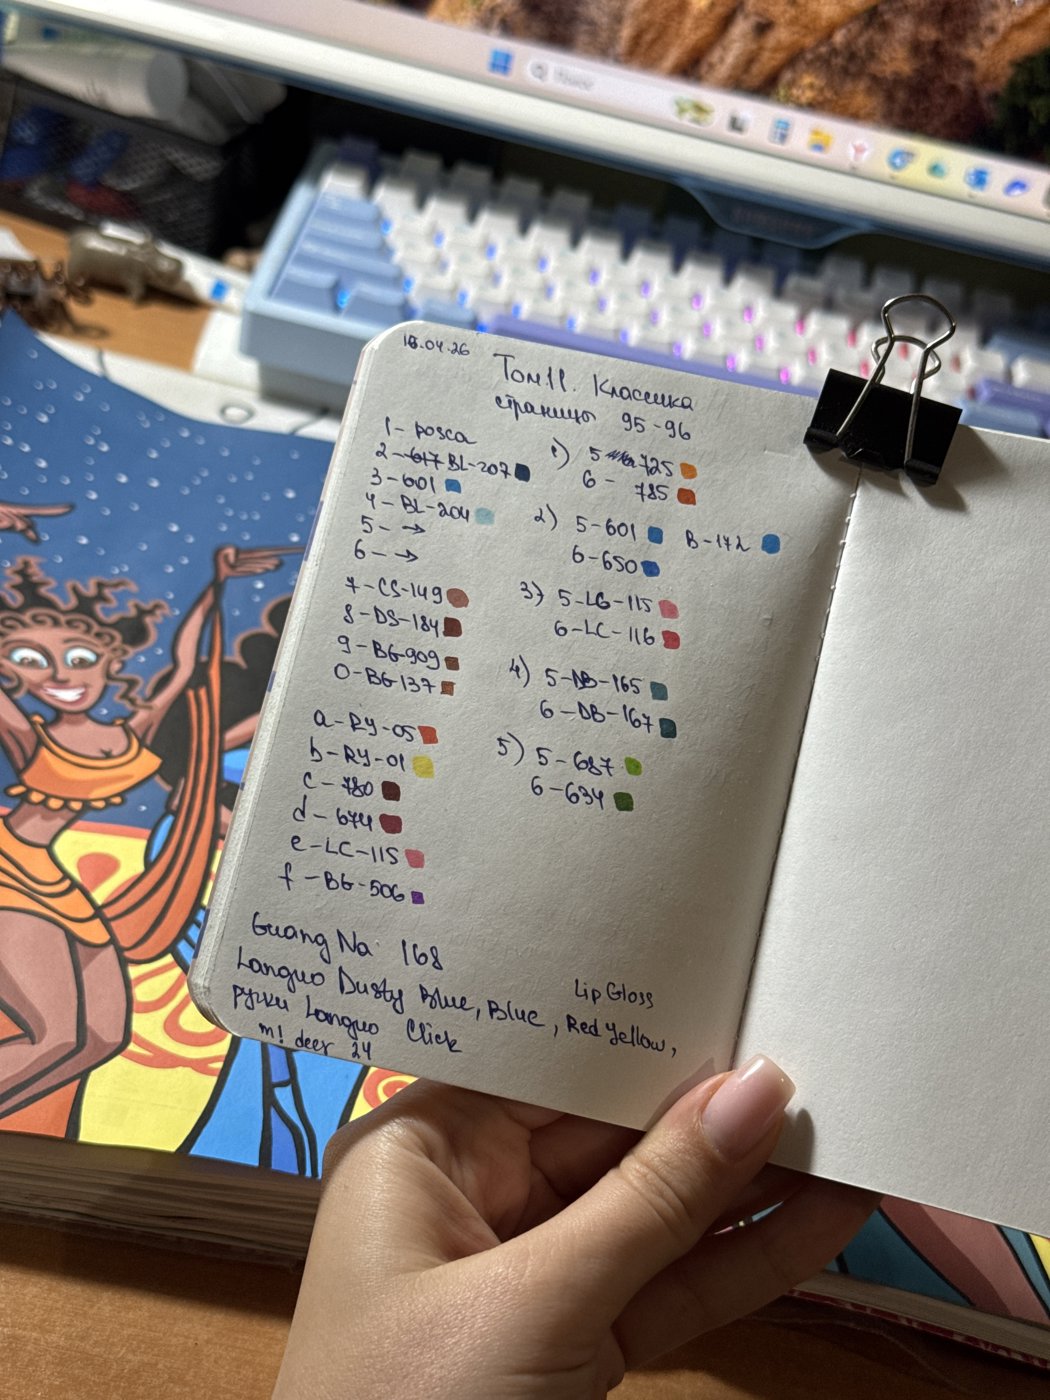 16.04.26
Том 11. Классика
страницы 95-96
1- posca
2-617 BL-207
3-601
4-BL-204
5- →
6- →
7-CS-149
8-DS-184
9-BG-909
0-BG-137
a-RY-05
b-RY-01
c-780
d-674
e-LC-115
f-BG-506
1) 5 725
6- 785
2) 5-601 B-172
6-650
3) 5-LG-115
6-LC-116
4) 5-DB-165
6-DB-167
5) 5-687
6-634
Guang Na 168
Languo Dusty Blue, Blue, Red Yellow, Lip Gloss
ручки Languo Click
m! deer 24